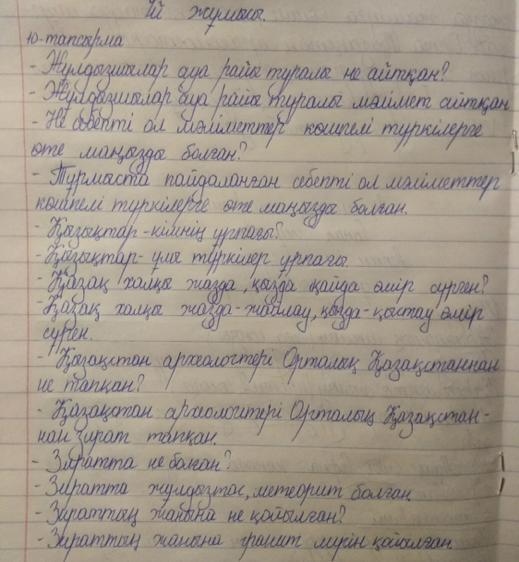 Үй жұмысы.
10-тапсырма
- Жұлдызшылар ауа райы туралы не айтқан?
- Жұлдызшылар ауа райы туралы мәлімет айтқан
- Не себепті ол мәліметтер көшпелі түркілерге
өте маңызды болған?
- Тұрмыста пайдаланған себепті ол мәліметтер
көшпелі түркілерге өте маңызды болған.
- Қазықтар - кімнің ұрпағы?
- Қазықтар - ұлы түркілер ұрпағы
- Қазақ халқы жазда, қызда қайда өмір сүрген?
- Қазақ халқы жазда - жайлау, қызда - қыстау өмір
сүрген.
- Қазақстан археологтері Орталық Қазақстаннан
не тапқан?
- Қазақстан археологтері Орталық Қазақстан-
нан зират тапқан.
- Зиратта не болған?
- Зиратта жұлдызтас, метеорит болған
- Зираттың жанына не қойылған?
- Зираттың жанына гранит мүсін қойылған